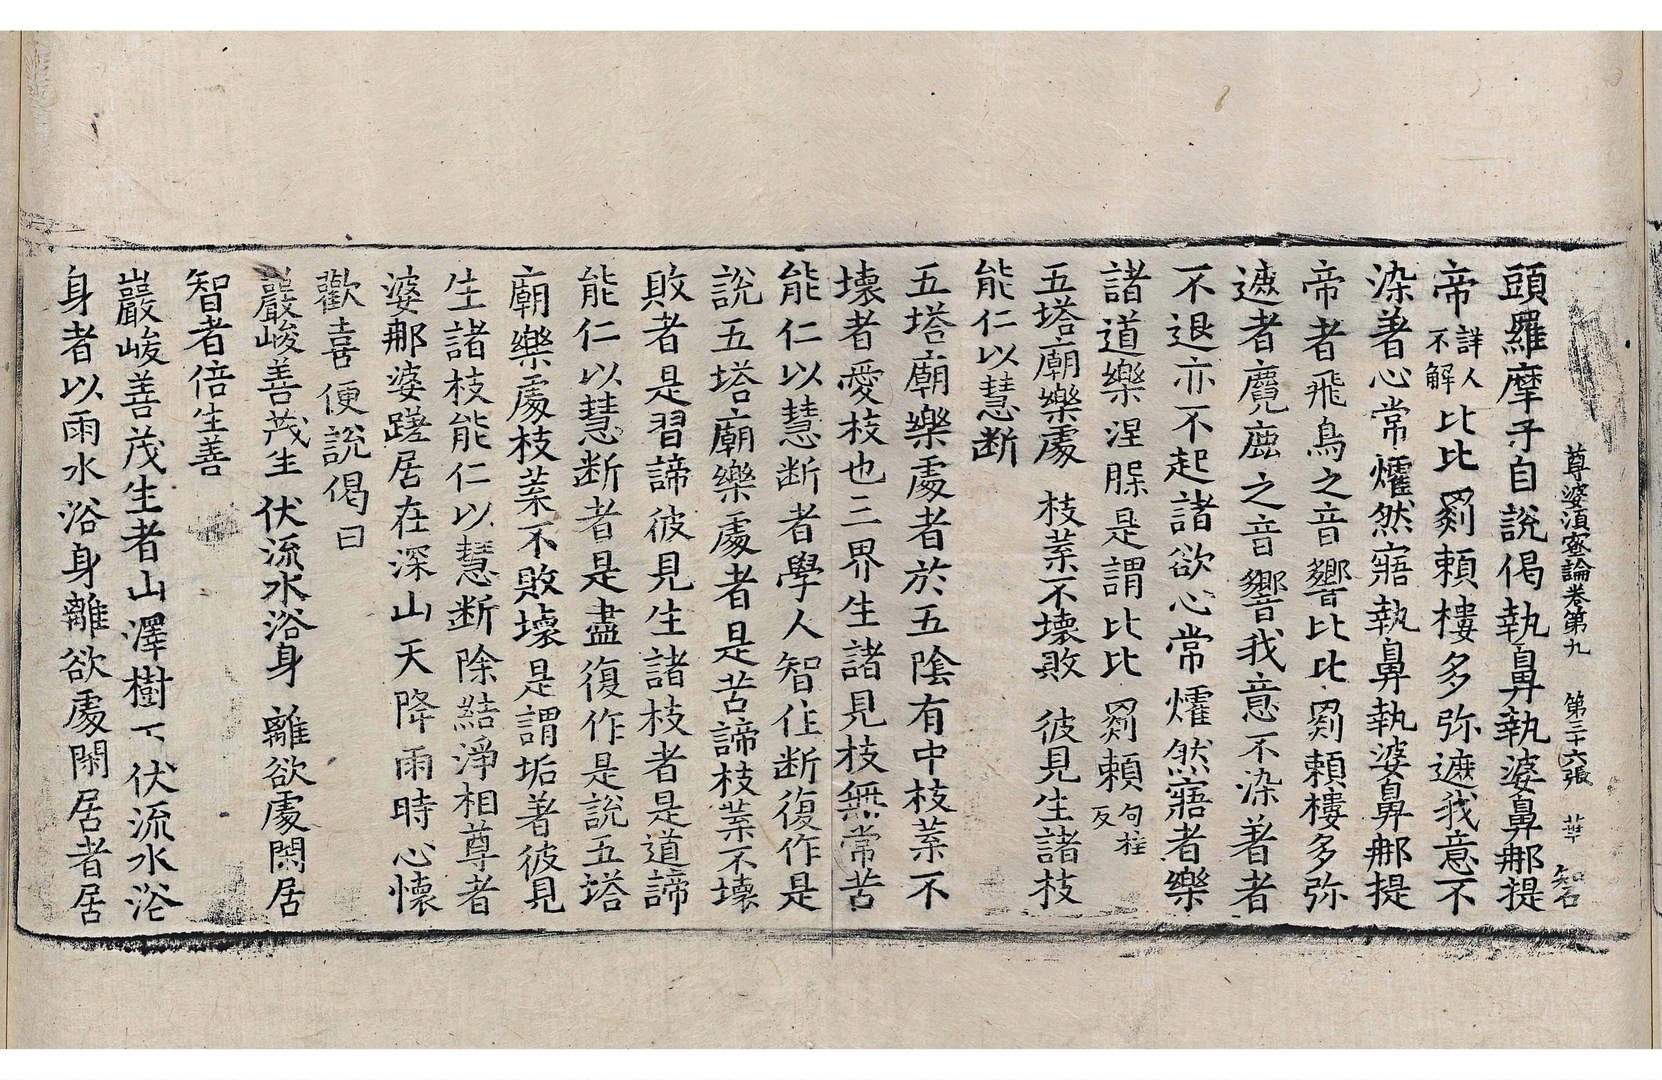 尊婆湏蜜論卷第九 第三十六張 華 智
頭羅摩子自說偈執鼻執婆鼻㖠提
帝詳人不解比比 劉頼樓多弥遮我意不
染著心常燿然寤執鼻執婆鼻㖠提
帝者飛鳥之音響比比劉頼樓多弥
遮者麑鹿之音響我意不染著者
不退亦不起諸欲心常燿然寤者樂
諸道樂涅脲是謂比比 劉頼句柱反
五塔廟樂處 枝葉不壞敗 彼見生諸枝
能仁以慧断
五塔廟樂處者於五陰有中枝葉不
壞者愛枝也三界生諸見枝無常苦
能仁以慧断者學人智住断復作是
說五塔廟樂處者是苦諦枝葉不壞
敗者是習諦彼見生諸枝者是道諦
能仁以慧断者是盡復作是說五塔
廟樂處枝葉不敗壞是謂垢著彼見
生諸枝能仁以慧断除結淨相尊者
婆㖠婆蹉居在深山天降雨時心懐
歡喜便說偈曰
巖峻善茂生 伏流水浴身 離欲處閑居
智者倍生善
巖峻善茂生者山澤樹下伏流水浴
身者以雨水浴身離欲處閑居者居